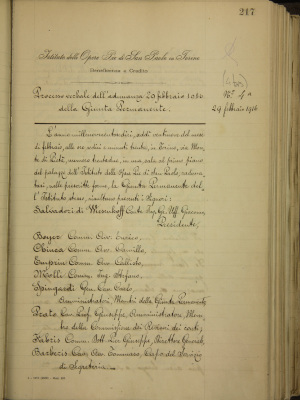 217
Istituto delle Opere Pie di San Paolo in Torino
Beneficenza e Credito
Processo verbale dell'adunanza 29 febbraio
della Giunta Permanente.
N° 4
29 febbraio 1916
L'anno addì ventinove del mese
di febbraio, alle ore e minuti trenta, in Torino, via Mon
te di Pietà, numero, in una sala al primo piano
del palazzo dell'Istituto delle Opere Pie di San Paolo, raduna
tasi, nelle prescritte forme, la Giunta Permanente del
l'Istituto stesso, risultano presenti i Signori:
Salvadori di Conte Ing. Uff.
Presidente,
Boyer Comm. Avv. Enrico,
Comm. Avv. Camillo,
Comm. Avv. Callisto,
Molli Comm. Ing. Stefano,
Spingardi Gen. Carlo
Amministratori, Membri della Giunta Permanente
Peyato Cav. Giuseppe, Amministratore, Mem
bro della Commissione dei Revisori dei conti,
Fabris Comm. Dott. Giuseppe, Direttore Generale,
Barberis Cav. Avv. Capo del Servizio
di Segreteria.